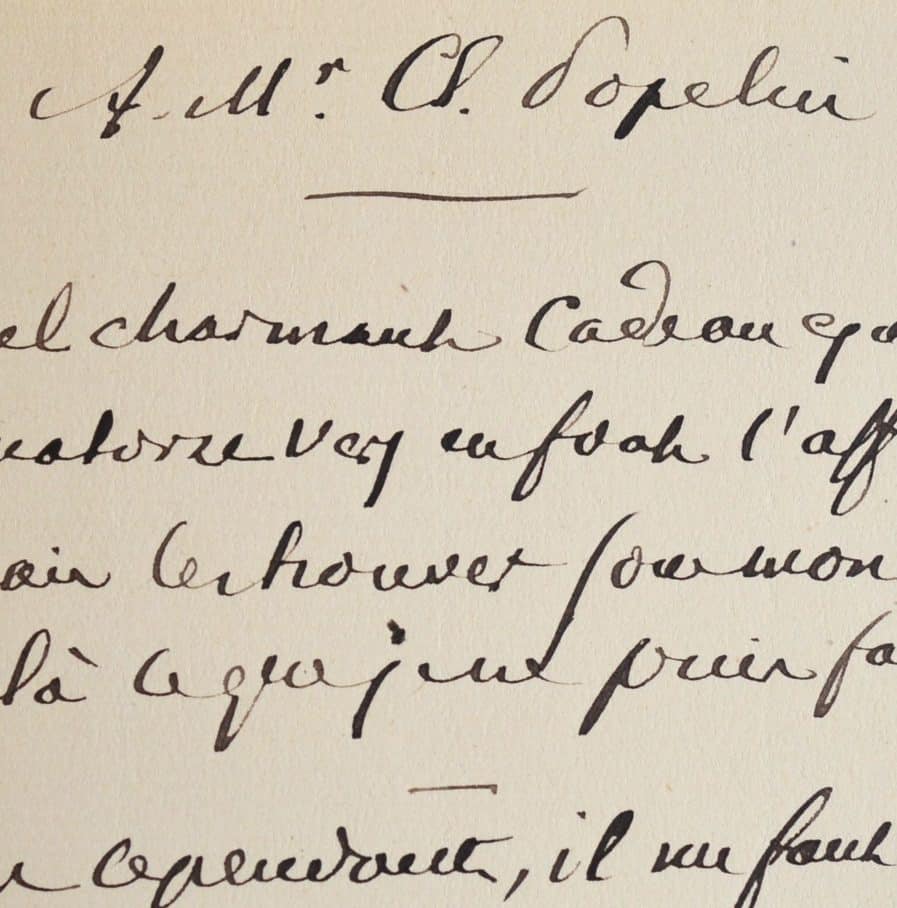 A Mr. Cl. Popelin
el charmant Cadeau q
uatorze vers en font l'aff
air les trouver sous mon
là ce que je ne puis fa
cependant, il me faut